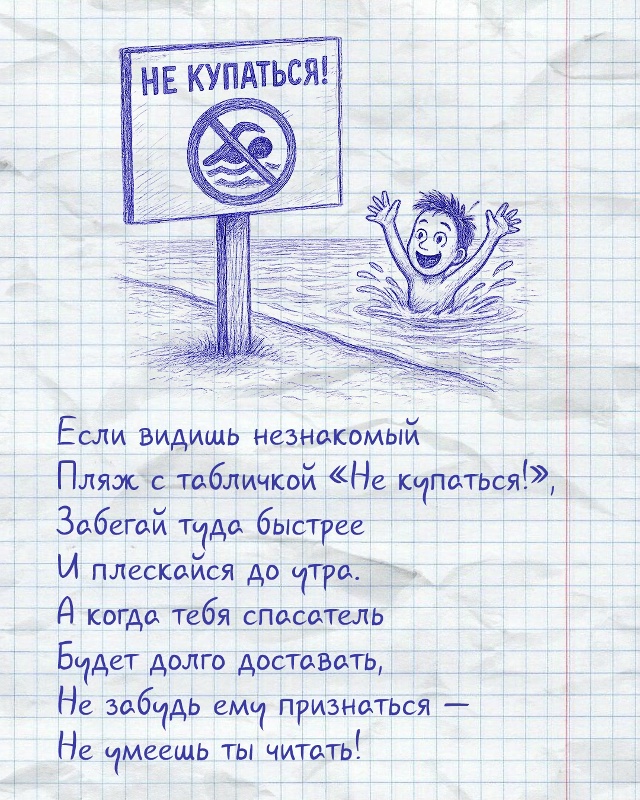 НЕ КУПАТЬСЯ!
Если видишь незнакомый
Пляж с табличкой «Не купаться!»,
Забегай туда быстрее
И плескайся до утра.
А когда тебя спасатель
Будет долго доставать,
Не забудь ему признаться —
Не умеешь ты читать!